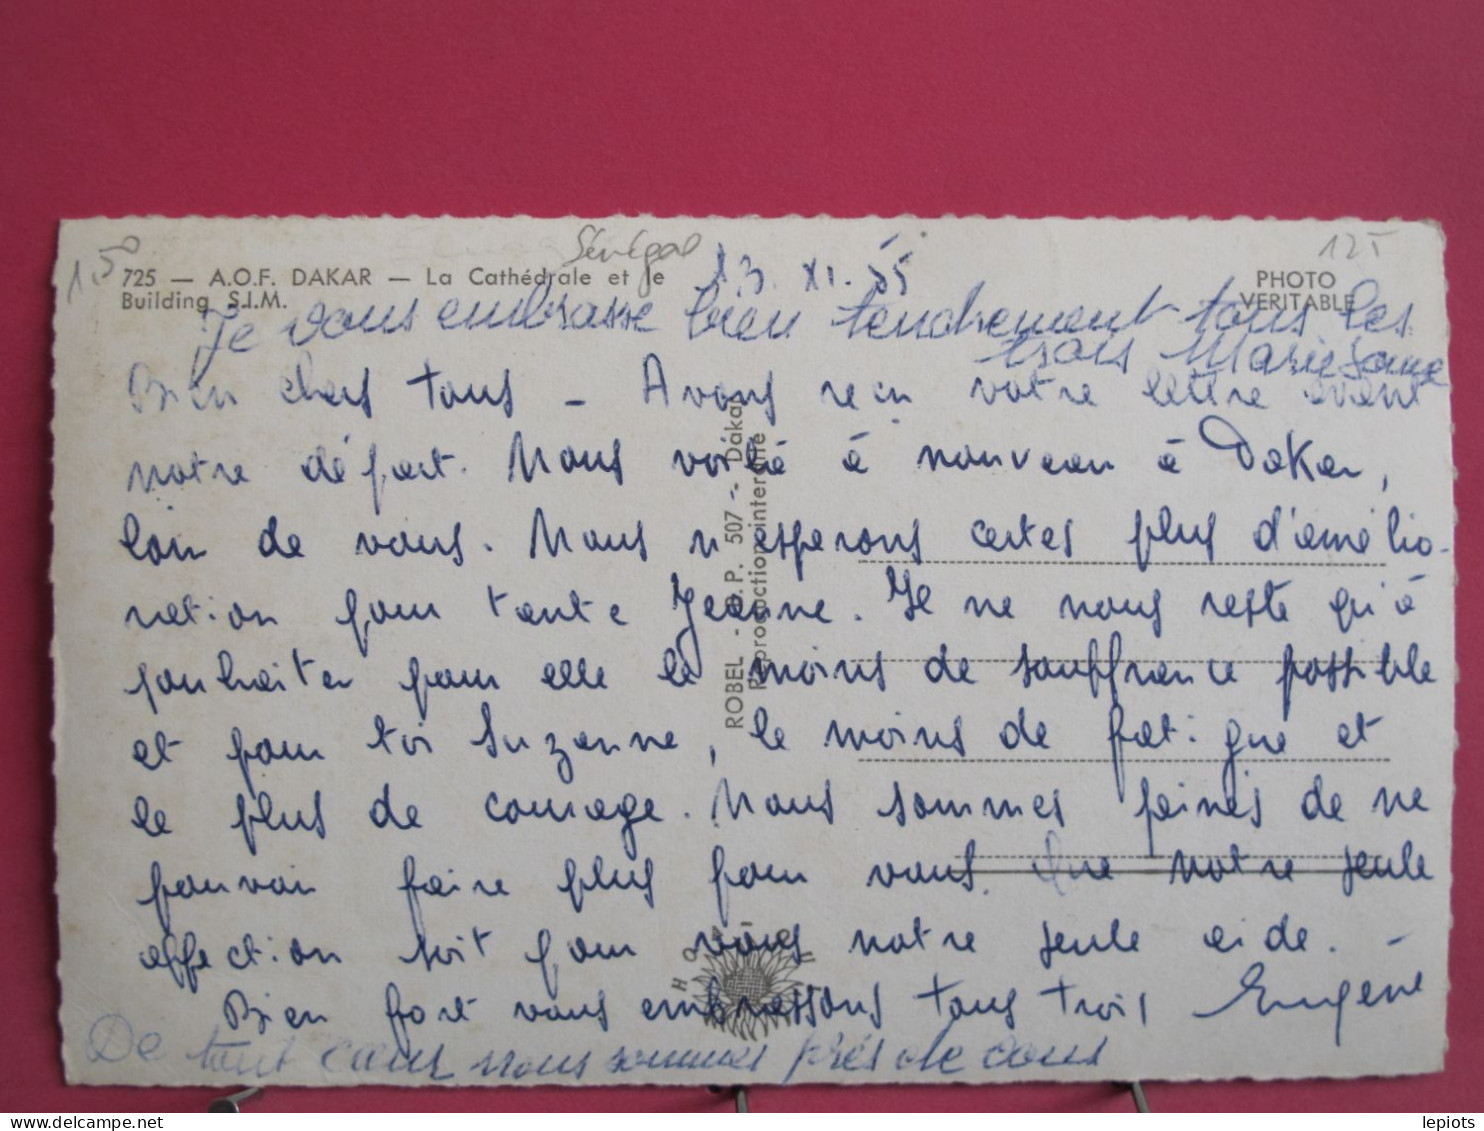 1.50
Sénégal
125
725 — A.O.F. DAKAR — La Cathédrale et le
Building S.I.M.
13. XI. 55
PHOTO
VERITABLE
Je vous embrasse bien tendrement tous les
trois Marie
Bien chers tous - Avons reçu votre lettre avant
notre départ. Nous voilà à nouveau à Dakar,
loin de vous. Nous n'espérons certes plus d'amélio-
ration pour tante Jeanne. Il ne nous reste qu'à
souhaiter pour elle le moins de souffrance possible
et pour toi Suzanne, le moins de fatigue et
le plus de courage. Nous sommes peinés de ne
pouvoir faire plus pour vous. Que notre seule
affection soit pour vous notre seule aide. -
Bien fort vous embrassons tous trois Eugène
De tout cœur nous sommes près de vous
ROBEL - O.P. 507 - Dakar
Reproduction interdite